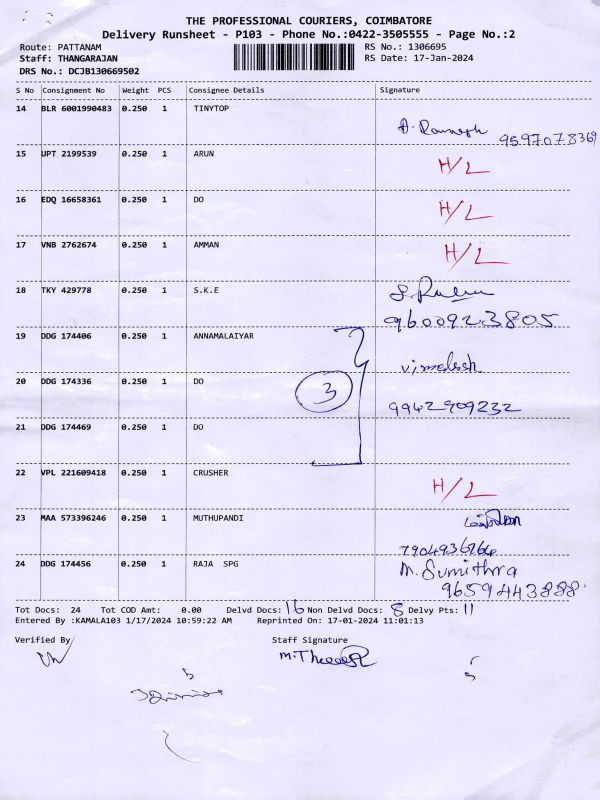 THE PROFESSIONAL COURIERS, COIMBATORE
Delivery Runsheet - P103 - Phone No.:0422-3505555 - Page No.:2
Route: PATTANAM RS No.: 1306695
Staff: THANGARAJAN RS Date: 17-Jan-2024
DRS No.: DCJB130669502
S No Consignment No Weight PCS Consignee Details Signature
14 BLR 6001990483 0.250 1 TINYTOP
9597078369
15 UPT 2199539 0.250 1 ARUN H/L
16 EDQ 16658361 0.250 1 DO H/L
17 VNB 2762674 0.250 1 AMMAN H/L
18 TKY 429778 0.250 1 S.K.E
9600923805
19 DDG 174406 0.250 1 ANNAMALAIYAR
20 DDG 174336 0.250 1 DO 3
9942909232
21 DDG 174469 0.250 1 DO
22 VPL 221609418 0.250 1 CRUSHER H/L
23 MAA 573396246 0.250 1 MUTHUPANDI
24 DDG 174456 0.250 1 RAJA SPG M. Sumithra
9659443888
Tot Docs: 24 Tot COD Amt: 0.00 Delvd Docs: 16 Non Delvd Docs: 8 Delvy Pts: 11
Entered By :KAMALA103 1/17/2024 10:59:22 AM Reprinted On: 17-01-2024 11:01:13
Verified By Staff Signature